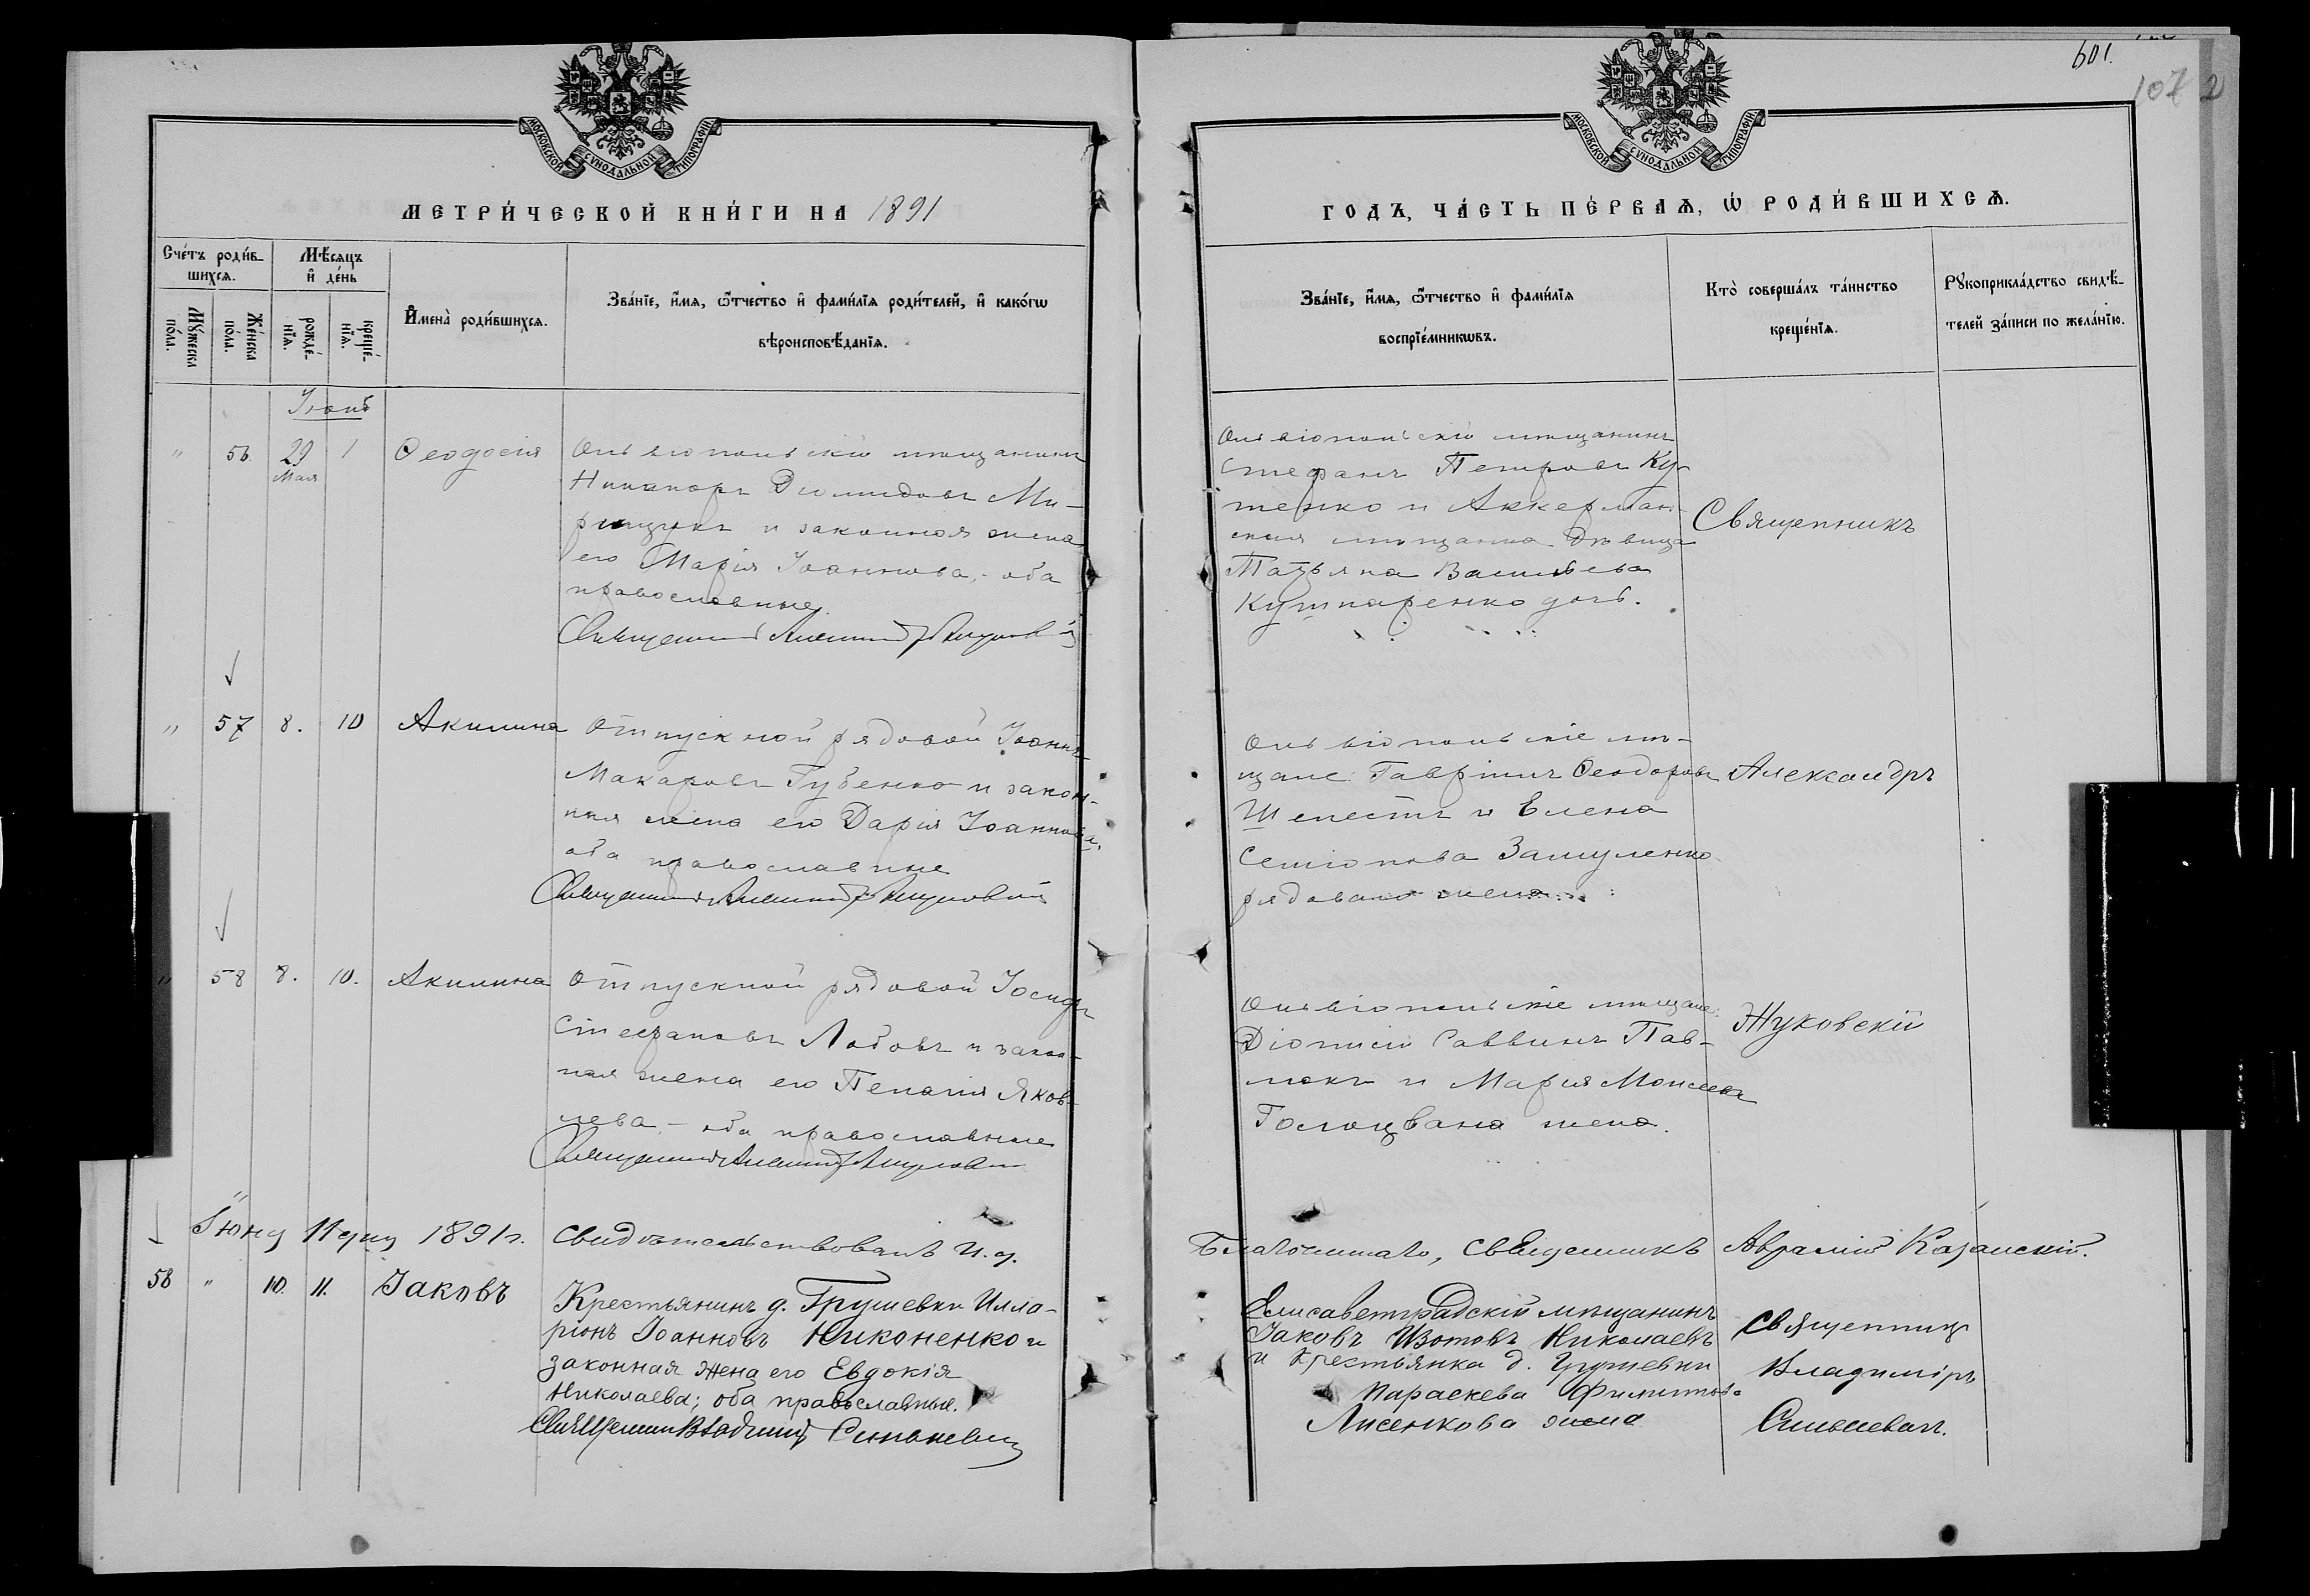 601.
107 2
МОСКОВСКОЙ СУНОДАЛЬНОЙ ТИПОГРАФІИ
МОСКОВСКОЙ СУНОДАЛЬНОЙ ТИПОГРАФІИ
МЕТРИ́ЧЕСКОЙ КНИ́ГИ НА 1891
ГОДЪ, ЧА́СТЬ ПЕ́РВАѦ, Ѡ҆ РОДИ́ВШИХСѦ.
Сче́тъ роди́в-
шихсѧ.
Мꙋ́жеска
по́ла.
Же́нска
по́ла.
Мѣ́сѧцъ
и҆ де́нь
рожде́-
нїѧ.
креще́-
нїѧ.
И҆мена̀ роди́вшихсѧ.
Зва́нїе, и҆́мѧ, ѻ҆́тчество и҆ фами́лїѧ роди́телей, и҆ како́гѡ
вѣроисповѣ́данїѧ.
Зва́нїе, и҆́мѧ, ѻ҆́тчество и҆ фами́лїѧ
воспрїе́мникѡвъ.
Кто̀ соверша́лъ та́инство
креще́нїѧ.
Рꙋкоприкла́дство свидѣ́-
телей за́писи по жела́нїю.
Іюнь
" 56. 29 1 Ѳеодосія
Мая
Ольвіопольскій мѣщанинъ
Никаноръ Діомидовъ Ми-
и законная жена
его Марія Іоаннова, - оба
православные.
Священникъ Александръ Жуковскій
Ольвіопольскій мѣщанинъ
Стефанъ Петровъ Ку-
ценко и Аккерман-
ская мѣщанка дѣвица
Татьяна Васильева
дочь.
Священникъ
" 57 8. 10 Акилина
Отпускной рядовой Іоаннъ
Макаровъ Губенко и закон-
ная жена его Дарія Іоаннова,
оба православные
Священникъ Александръ Жуковскій
Ольвіопольскіе мѣ-
щане: Гавріилъ Ѳеодоровъ
Шелестъ и Елена
Семіонова
рядового жена
Александръ
" 58 8. 10. Акилина
Отпускной рядовой Іосифъ
Стефановъ Лобовъ и закон-
ная жена его Пелагія Яков-
лева, - оба православные
Священникъ Александръ Жуковскій
Ольвіопольскіе мѣщане:
Діонисій Саввинъ Пав-
люкъ и Марія Моисеева
жена.
Жуковскій
Іюня 11 дня 1891 г. Свидѣтельствовалъ И. д.
Благочиннаго, Священникъ Аврамій Казанскій.
58 " 10. 11. Іаковъ
Крестьянинъ д. Грушевки Илла-
ріонъ Іоанновъ Никоненко и
законная жена его Евдокія
Николаева; оба православные.
Священникъ Владиміръ Синькевичъ
Елисаветградскій мѣщанинъ
Іаковъ Изотовъ Николаевъ
и крестьянка д. Грушевки
Параскева Филиппова
Лисенкова жена
Священникъ
Владиміръ
Синькевичъ.